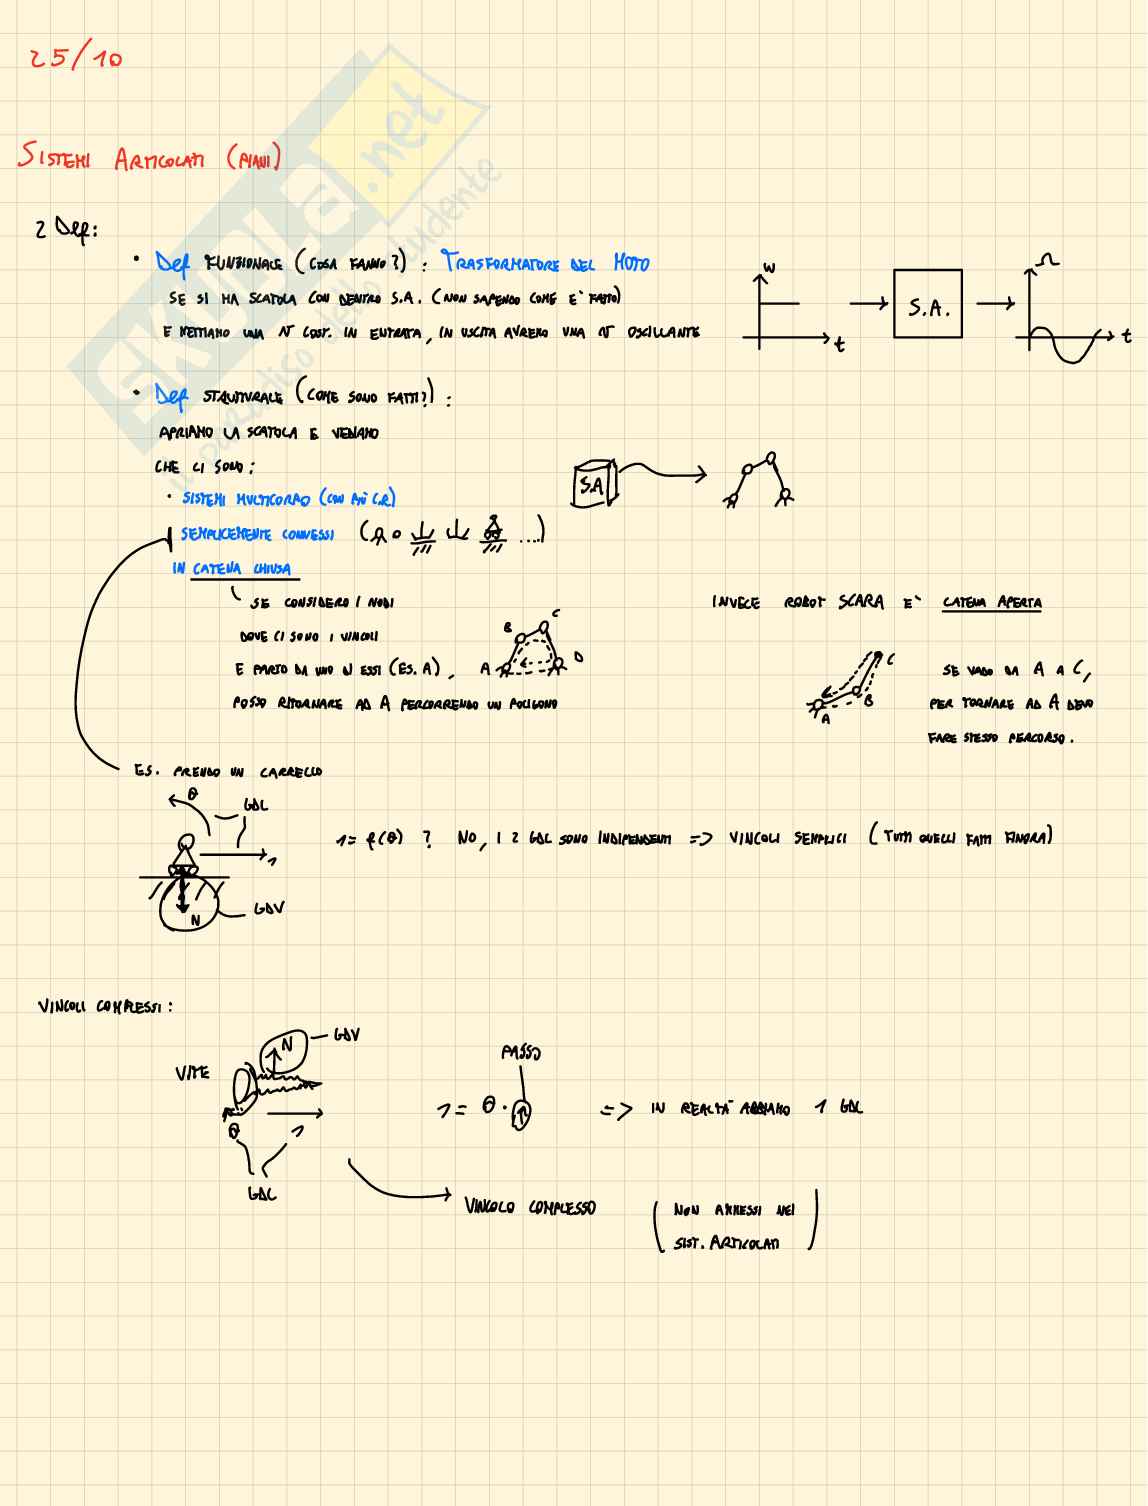 25/10
SISTEMI ARTICOLATI (PIANI)
2 Def:
• Def FUNZIONALE (COSA FANNO?): TRASFORMATORE DEL MOTO
SE SI HA SCATOLA CON DENTRO S.A. (NON SAPENDO COME E' FATTO)
E METTIAMO UNA N COST. IN ENTRATA, IN USCITA AVREMO UNA N OSCILLANTE
w
t
S.A.
Ω
t
• Def STRUTTURALE (COME SONO FATTI?):
APRIAMO LA SCATOLA E VEDIAMO
CHE CI SONO:
S.A
• SISTEMI MULTICORPO (CON PIÙ C.R)
SEMPLICEMENTE CONNESSI ( o ....)
IN CATENA CHIUSA
SE CONSIDERO I NODI
DOVE CI SONO I VINCOLI
E PARTO DA UNO DI ESSI (ES. A),
POSSO RITORNARE AD A PERCORRENDO UN POLIGONO
A B C D
INVECE ROBOT SCARA E' CATENA APERTA
A B C
SE VADO DA A A C,
PER TORNARE AD A DEVO
FARE STESSO PERCORSO.
ES. PRENDO UN CARRELLO
θ
GDL
1
N
GDV
1 = f(θ) ? NO, I 2 GDL SONO INDIPENDENTI => VINCOLI SEMPLICI (TUTTI QUELLI FATTI FINORA)
VINCOLI COMPLESSI:
VITE
N
GDV
θ
1
GDL
PASSO
1 = θ ·
=> IN REALTÀ ABBIAMO 1 GDL
VINCOLO COMPLESSO
(NON AMMESSI NEI
SIST. ARTICOLATI)
SKUOLA.net